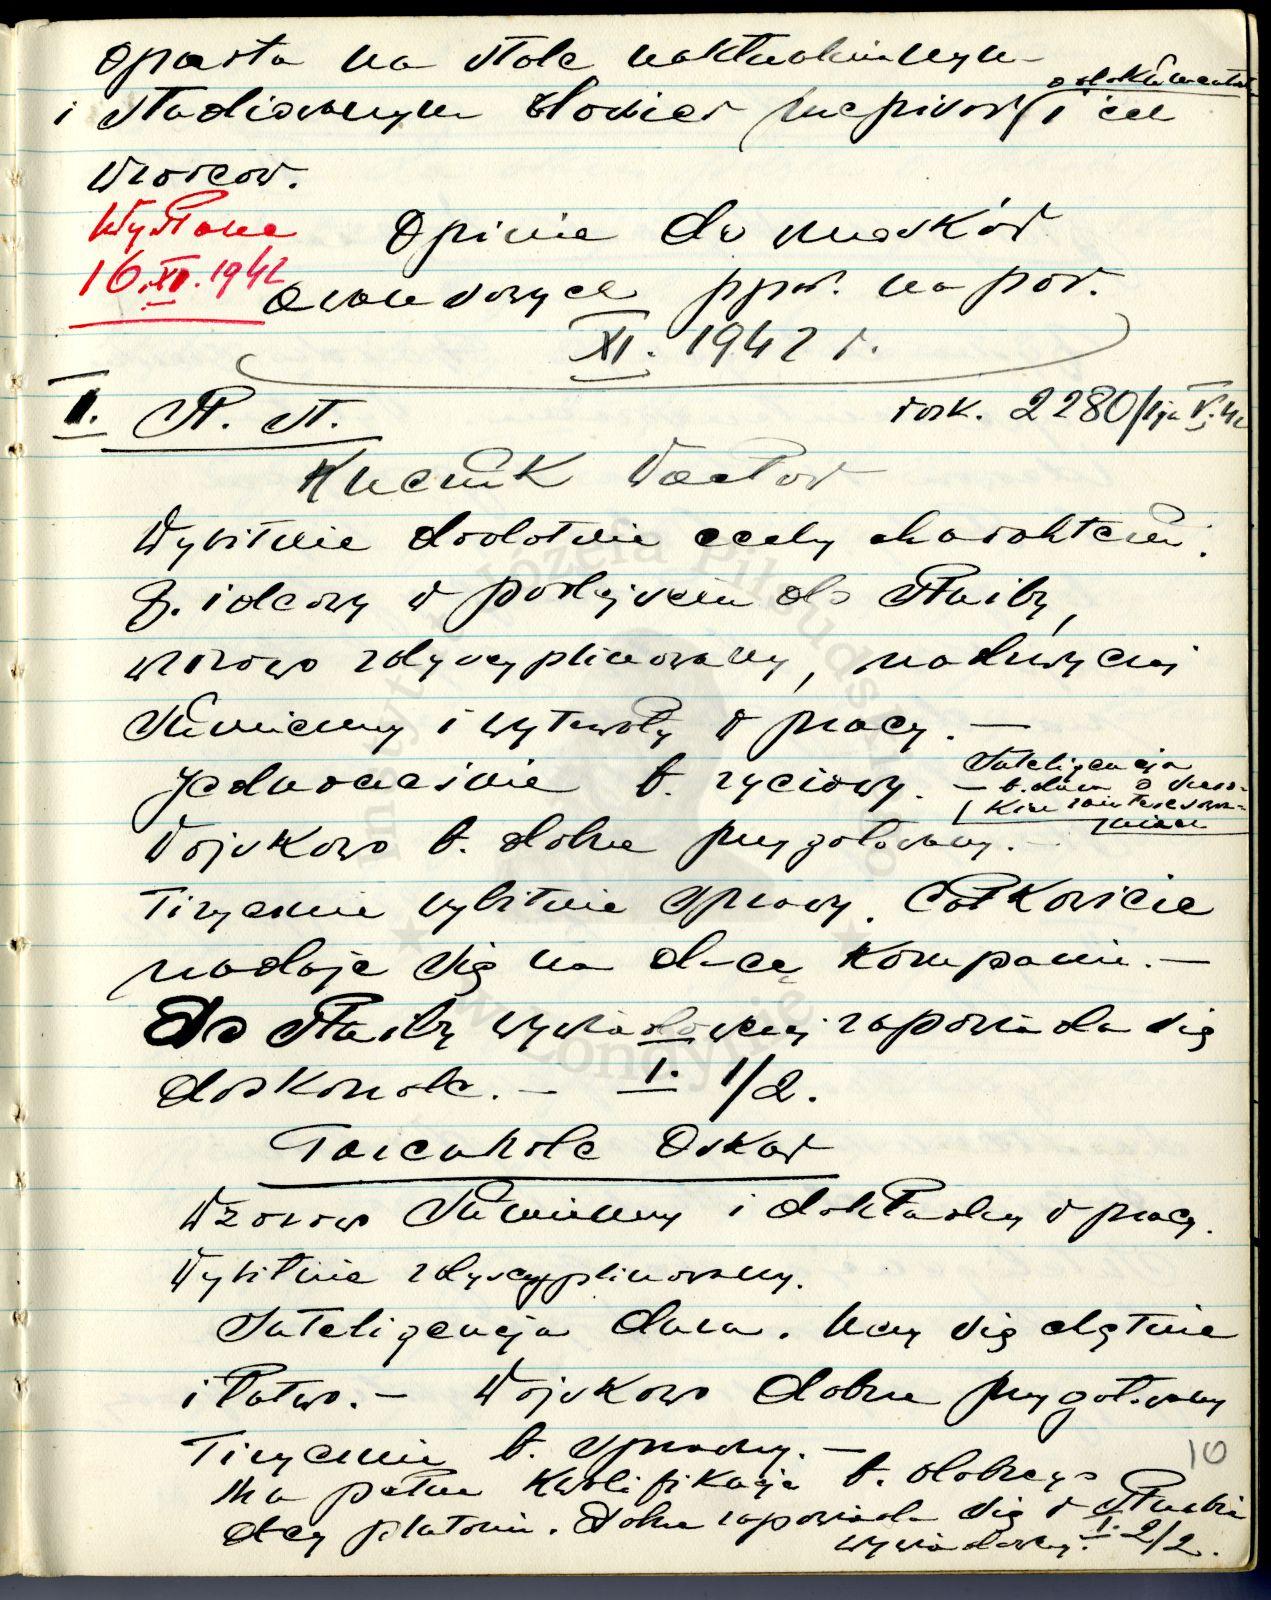 oparta na stale uaktualnianym
i studiowanym słowie npla i dokumentach
wzorców.
Wysłane
16.XI.1942
Opinie do wniosków
awansowych ppor. na por.
XI. 1942 r.
I. St. st. rozk. 2280/tjn V.42
Kucznik Wacław
Wybitnie dodatnie cechy charakteru.
B. ideowy w podejściu do służby,
wzorowo zdyscyplinowany, nadzwyczaj
sumienny i wytrwały w pracy. —
Jednocześnie b. życiowy. — Inteligencja
b. duża o szero-
kim zaintereso-
waniu
Wojskowo b. dobrze przygotowany. —
Fizycznie wybitnie sprawny. Całkowicie
nadaje się na d-cę kompanii. —
Do służby wywiadowczej zapowiada się
doskonale. — I. 1/2.
Oskar
Wzorowo sumienny i dokładny w pracy.
Wybitnie zdyscyplinowany.
Inteligencja duża. Uczy się chętnie
i łatwo. — Wojskowo dobrze przygotowany
Fizycznie b. sprawny. —
Ma pełne kwalifikacje b. dobrego
dcy plutonu. Dobrze zapowiada się w służbie
wywiadowczej. I. 2/2.
10
Instytut Józefa Piłsudskiego
w Londynie